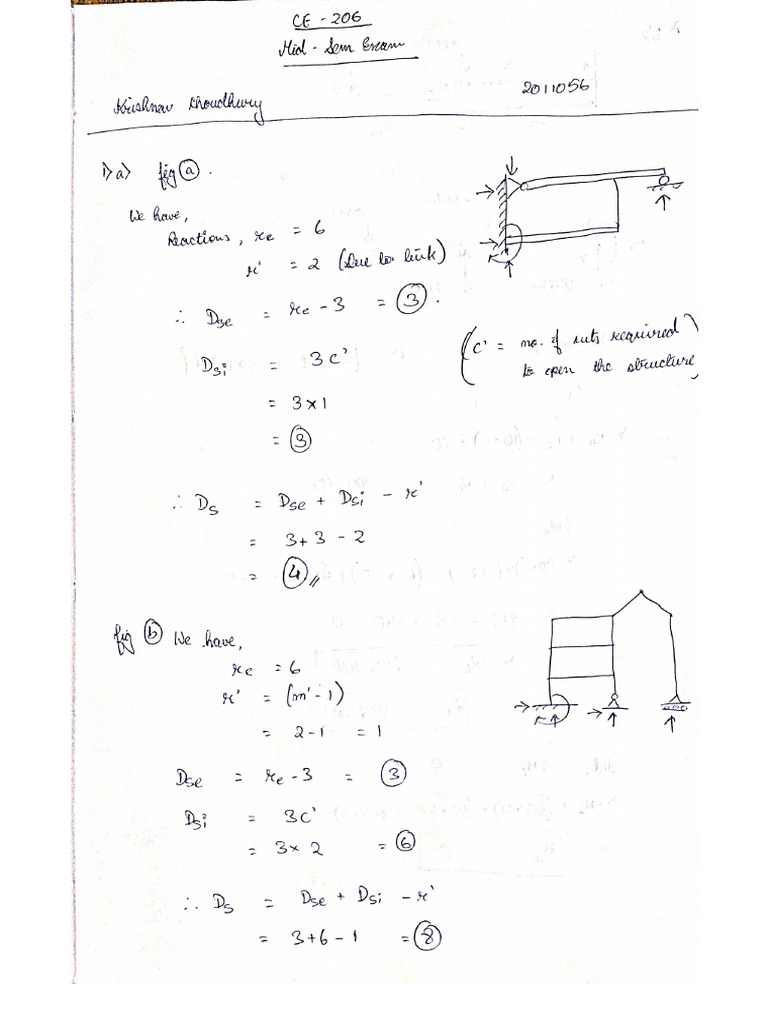 CE - 206
Mid - Sem Exam
Krishnav Choudhury
2011056
1) a) fig (a).
We have,
Reactions, re = 6
r' = 2 (Due to link)
∴ Dse = re - 3 = (3).
(C' = no. of cuts required
to open the structure)
Dsi = 3C'
= 3 × 1
= (3)
∴ Ds = Dse + Dsi - r'
= 3 + 3 - 2
= (4)//
fig (b) We have,
re = 6
r' = (m' - 1)
= 2 - 1 = 1
Dse = re - 3 = (3)
Dsi = 3C'
= 3 × 2 = (6)
∴ Ds = Dse + Dsi - r'
= 3 + 6 - 1 = (8)